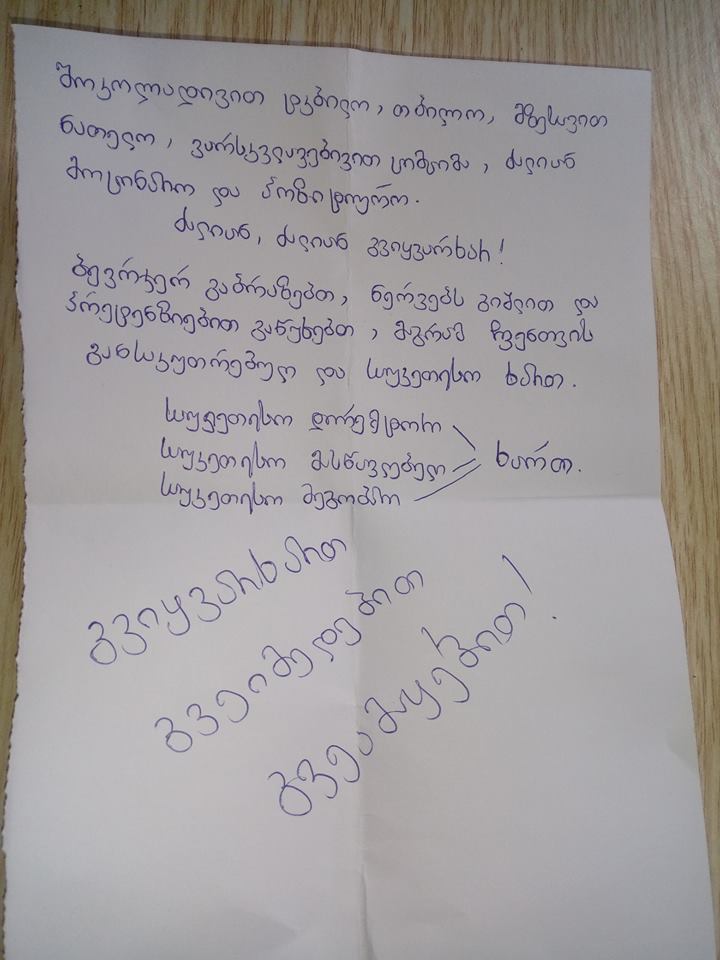 შოკოლადივით ტკბილო, თბილო, მზესავით
ნათელო, ვარსკვლავებივით ციმციმა, ძალიან
მოცინარო და პოზიტიურო.
ძალიან, ძალიან გვიყვარხარ!
ბევრჯერ გაბრაზებთ, ნერვებს გიშლით და
პრეტენზიებით განუხებთ, მაგრამ ჩვენთვის
განსაკუთრებული და საუკეთესო ხართ.
საუკეთესო დირექტორი
საუკეთესო მასწავლებელი
ხართ.
საუკეთესო მეგობარი
გვიყვარხართ
გვეიმედებით
გვეამაყებით!